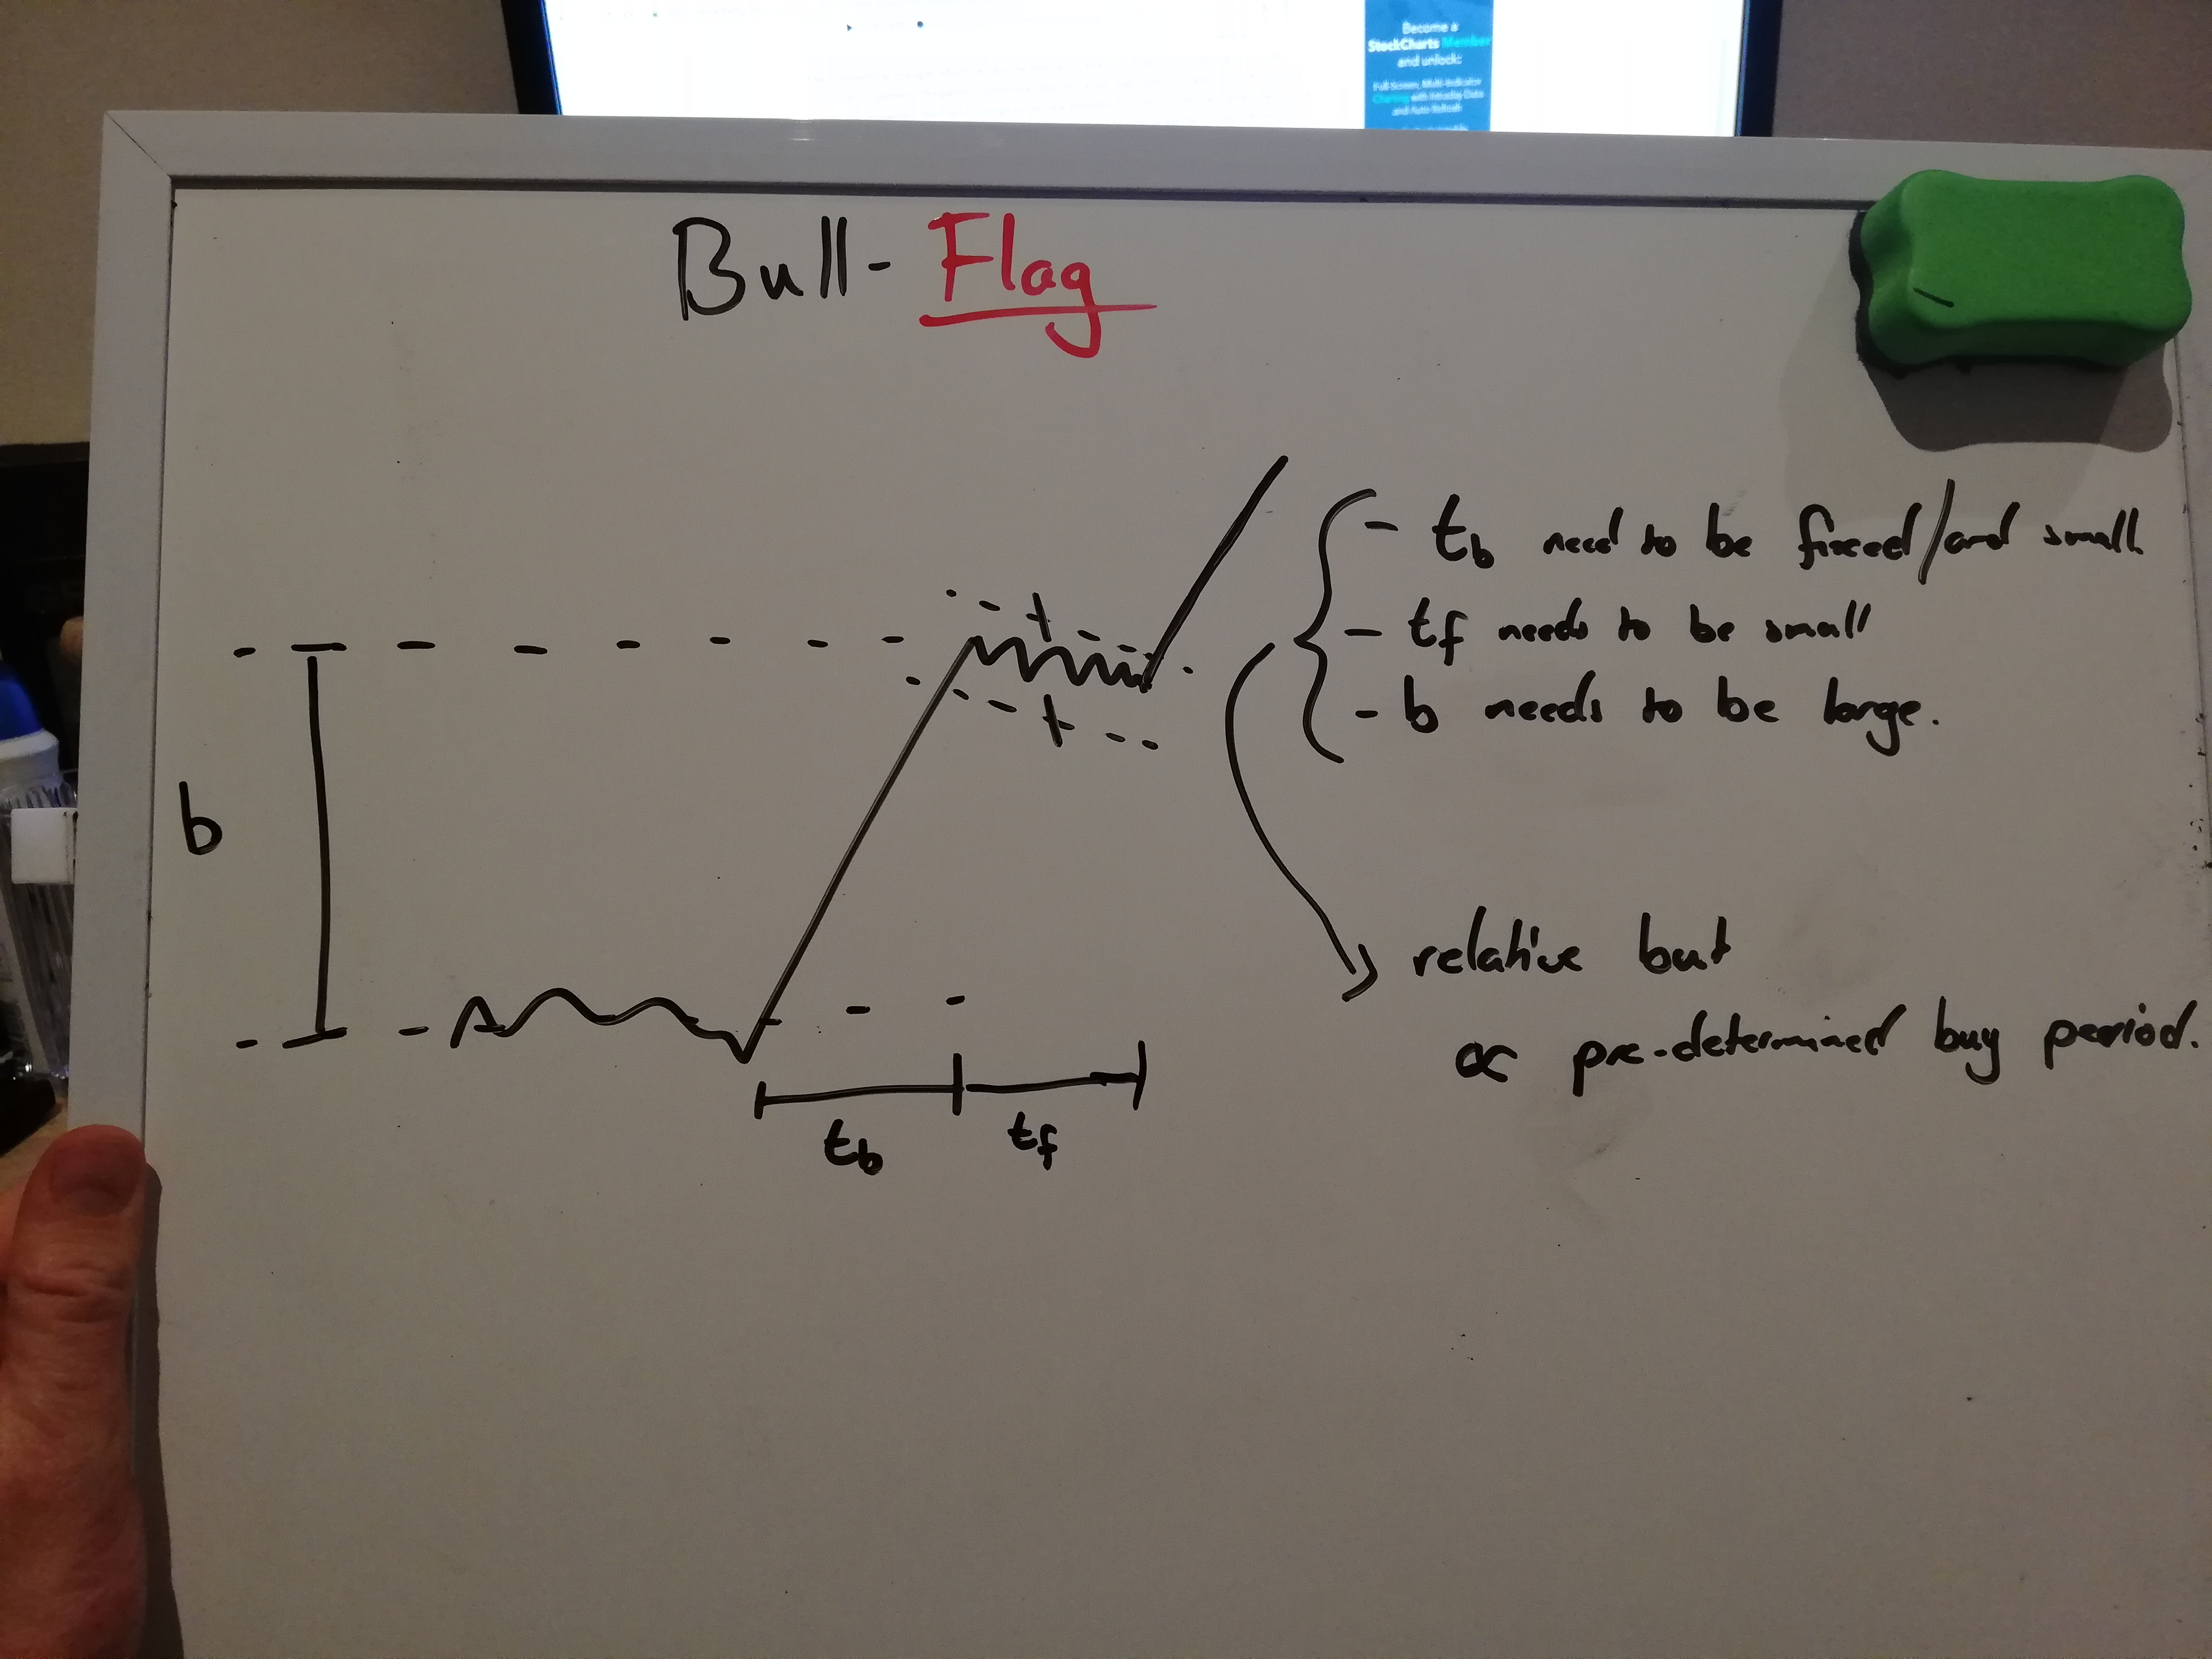 Become a
StockCharts Member
and unlock:
Full-Screen, Multi-Indicator
Charting with Intraday Data
and Auto-Refresh
Bull- Flag
- tb need to be fixed/and small
- tf needs to be small
- b needs to be large.
b
relative but
∝ pre-determined buy period.
tb
tf